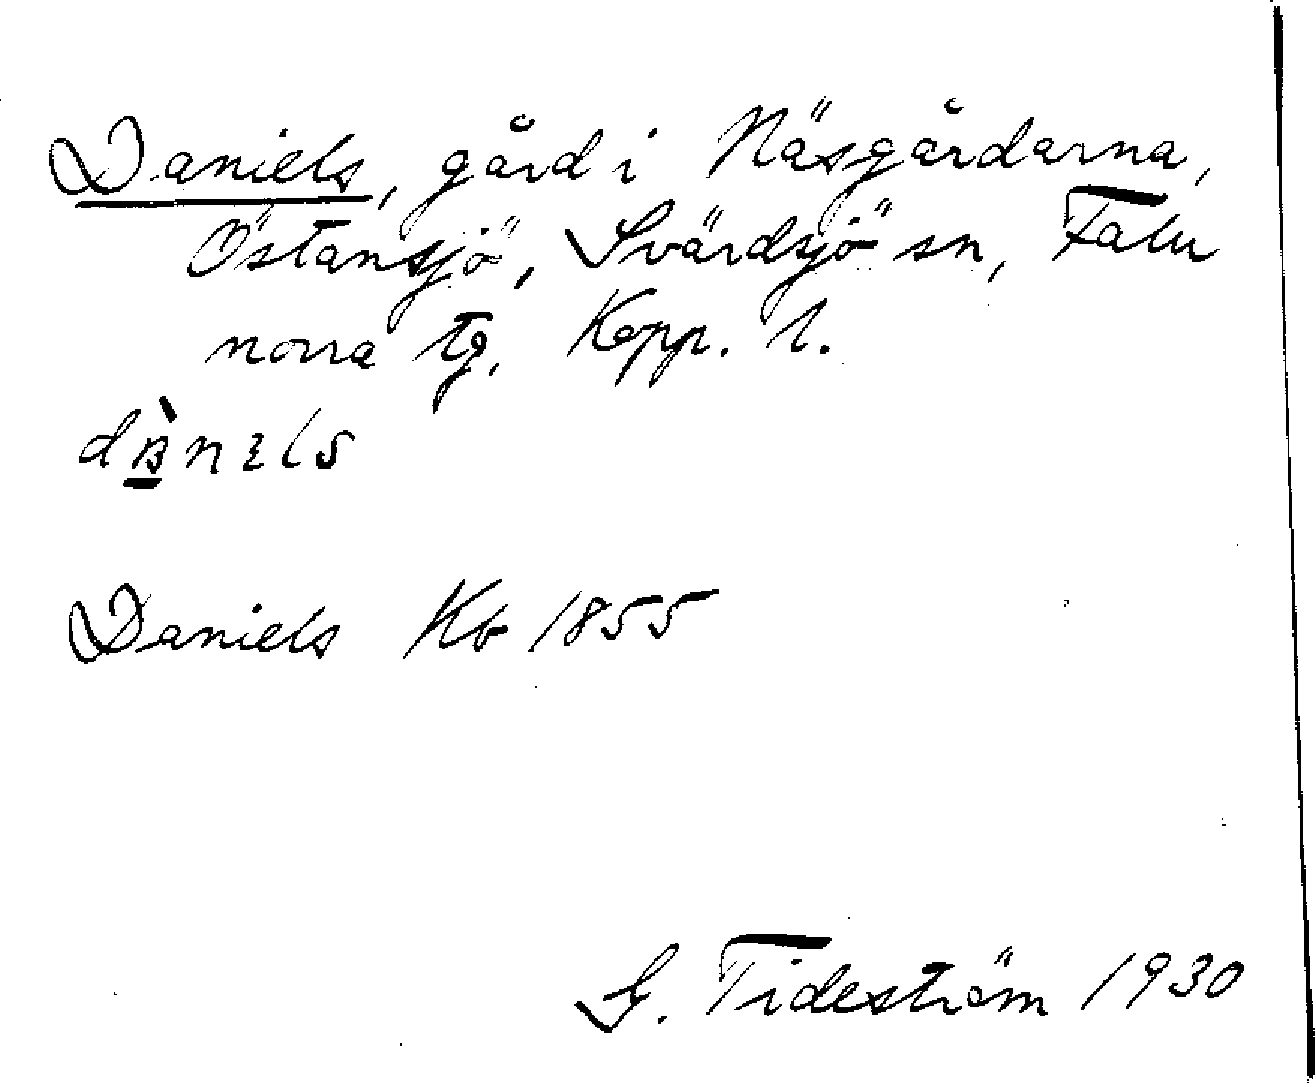 Daniels, gård i Näsgårdarna,
Östansjö, Svärdsjö sn, Falu
norra tg, Kopp. l.
Daniels Kb 1855
G. Tideström 1930